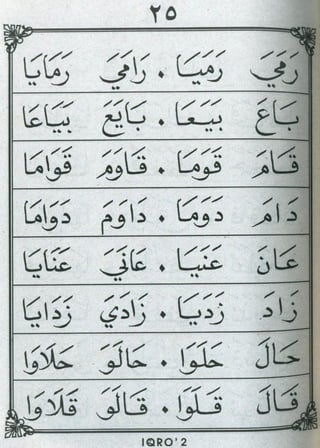 ٢٥
رَمِيَ رَمَيَـا . رَامَيَ رَمَايَا
بَـاعَ بَيَـعَـا . بَـايَعَ بَيَـاعَا
قَـامَ قَوَمَـا . قَـاوَمَ قَوَامَـا
دَامَ دَوَمَـا . دَاوَمَ دَوَامَـا
عَـانَ عَنَيَـا . عَانَيَ عَنَـايَا
زَادَ زَدَيَـا . زَادَيَ زَدَايَـا
حَـالَ حَلَـوَا . حَالَـوَ حَلَاوَا
قَـالَ قَلَـوَا . قَالَـوَ قَلَاوَا
IQRO'2